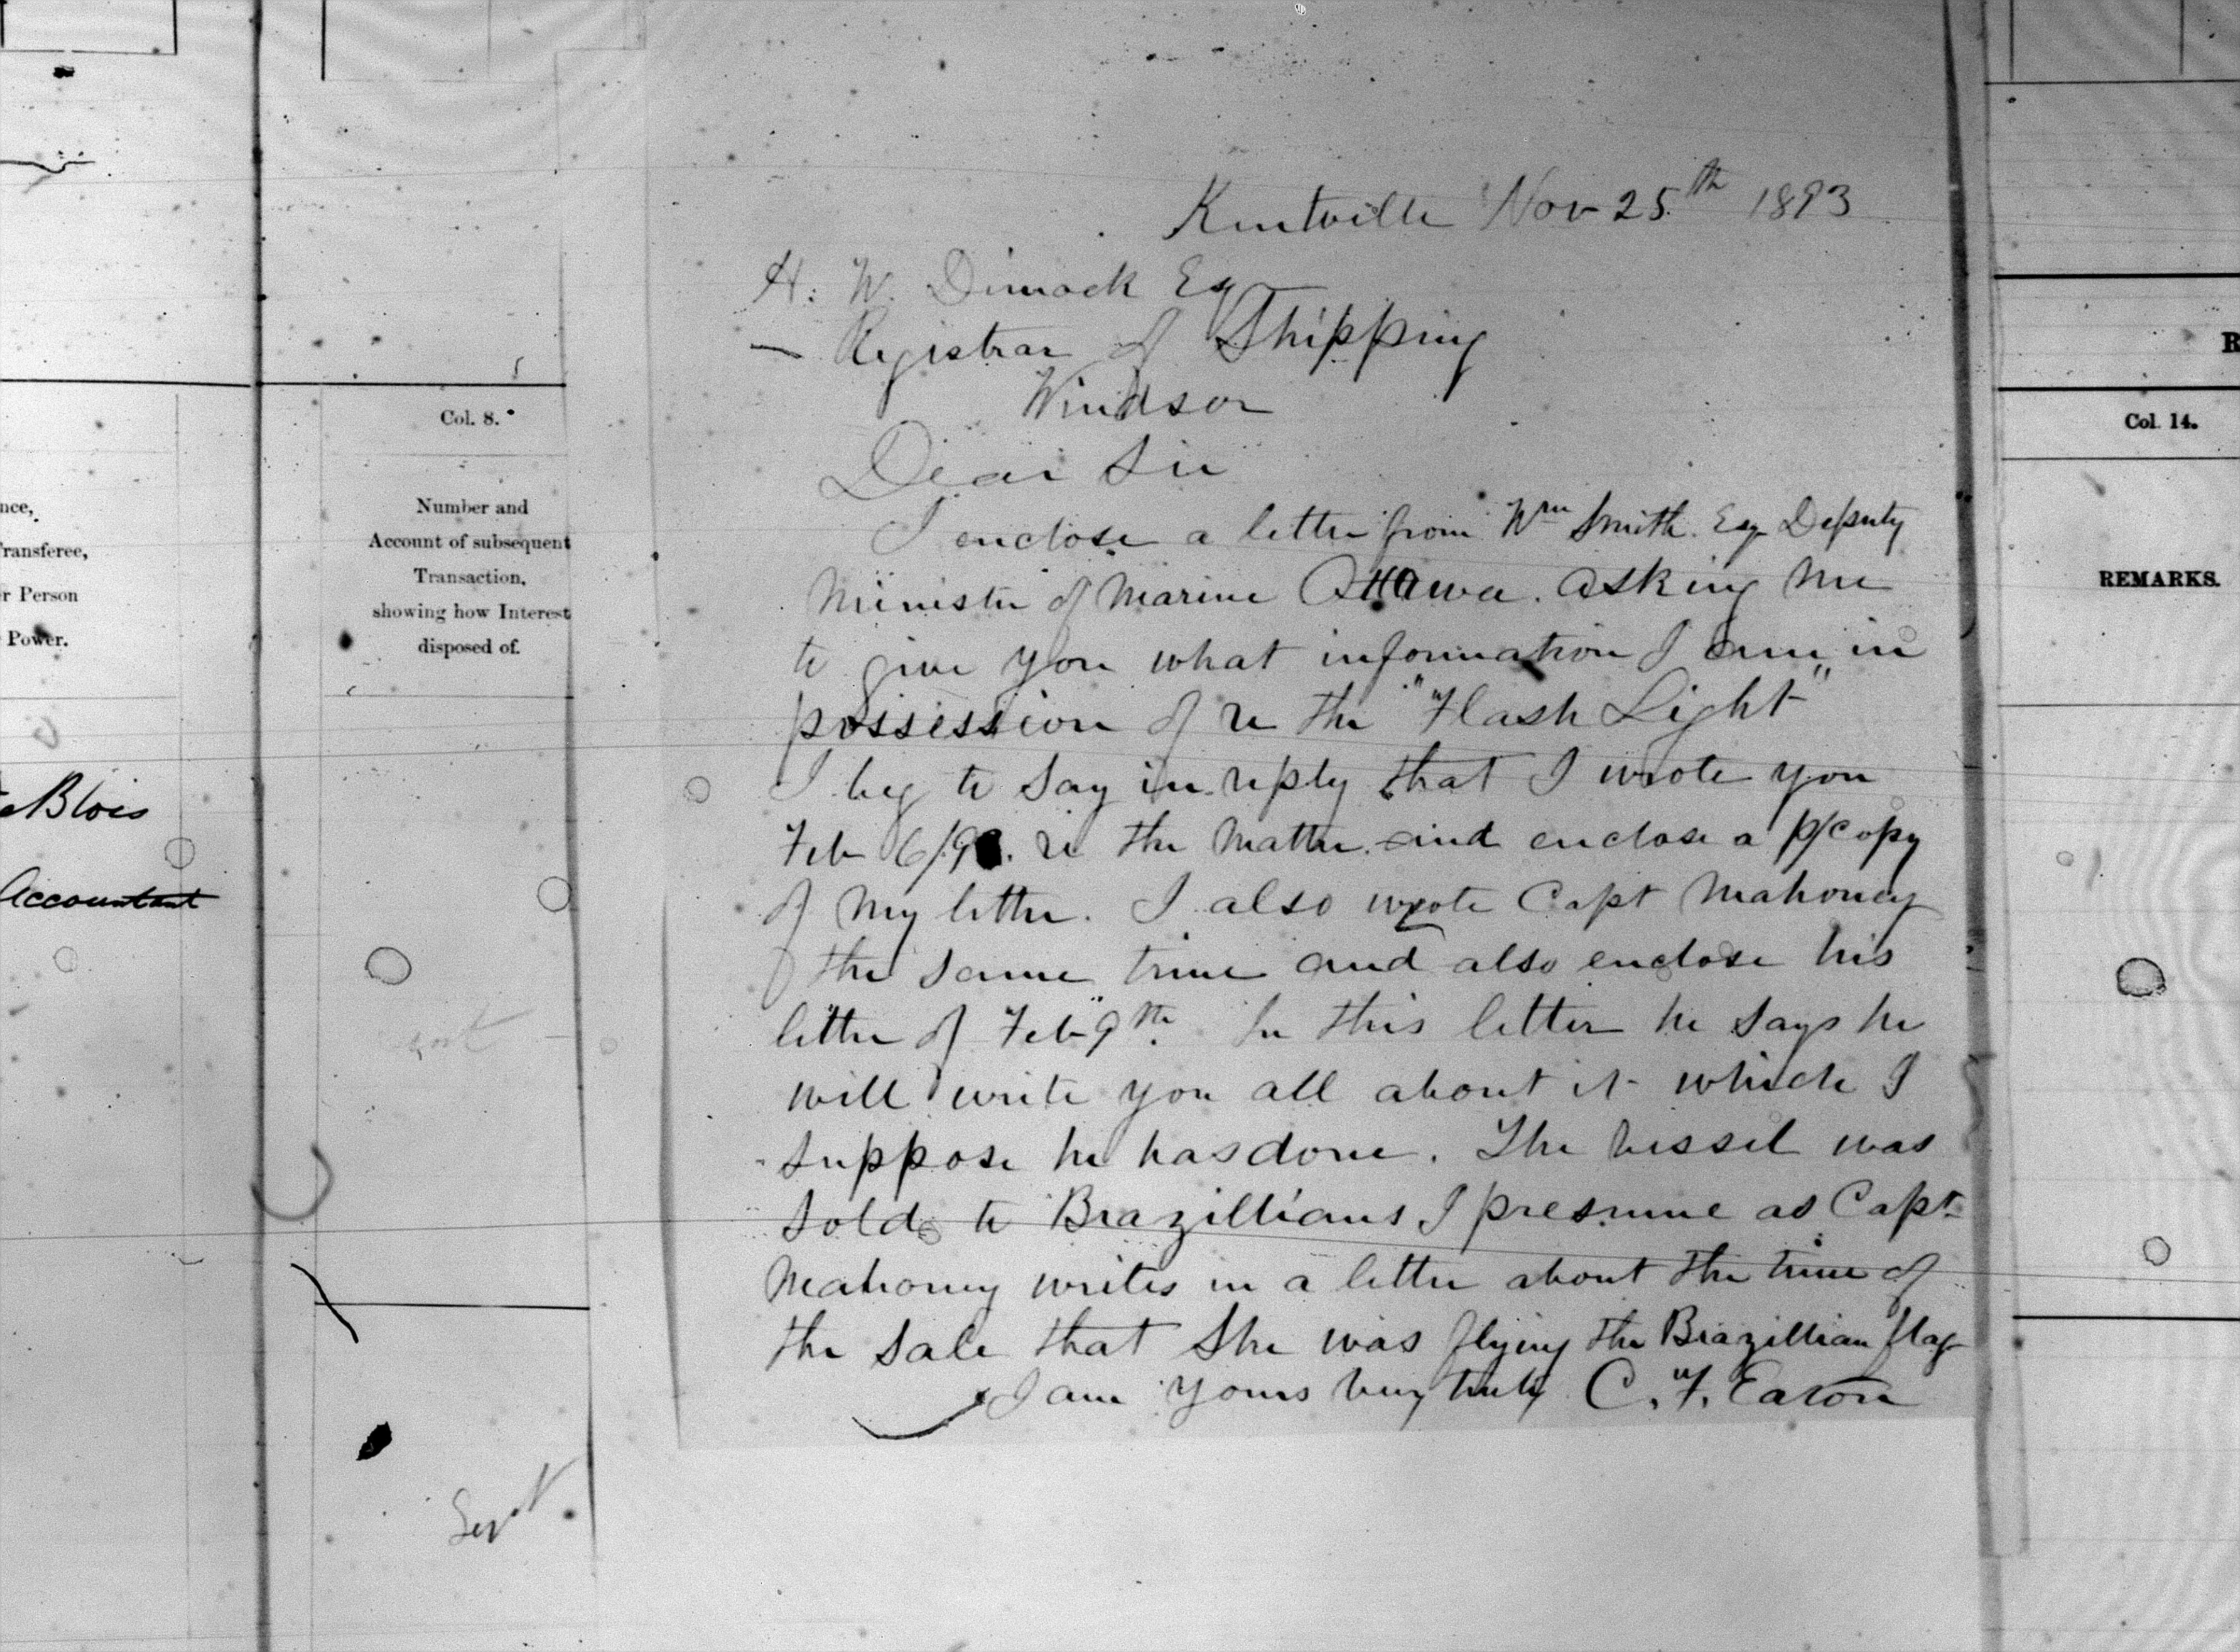 Kentville Nov 25th 1893
H. W. Dimock Esq
Registrar of Shipping
Windsor
Dear Sir
I enclose a letter from Wm Smith. Esq Deputy
Minister of Marine Ottawa. asking me
to give you what information I am in
possession of re the "Flash Light"
I beg to say in reply that I wrote you
Feb 6/9 . re the matter. and enclose a p/copy
of my letter. I also wrote Capt Mahoney
the same time and also enclose his
letter of Feb 9th. In this letter he says he
will write you all about it which I
suppose he has done. The vessel was
sold to Brazillians I presume as Capt
Mahoney writes in a letter about the time of
the sale that she was flying the Brazillian flag
I am yours very truly C. F. Eaton
Col. 8.
Number and
Account of subsequent
Transaction,
showing how Interest
disposed of.
Sept
nce,
Transferee,
r Person
Power.
Blois
Accountant
R
Col. 14.
REMARKS.